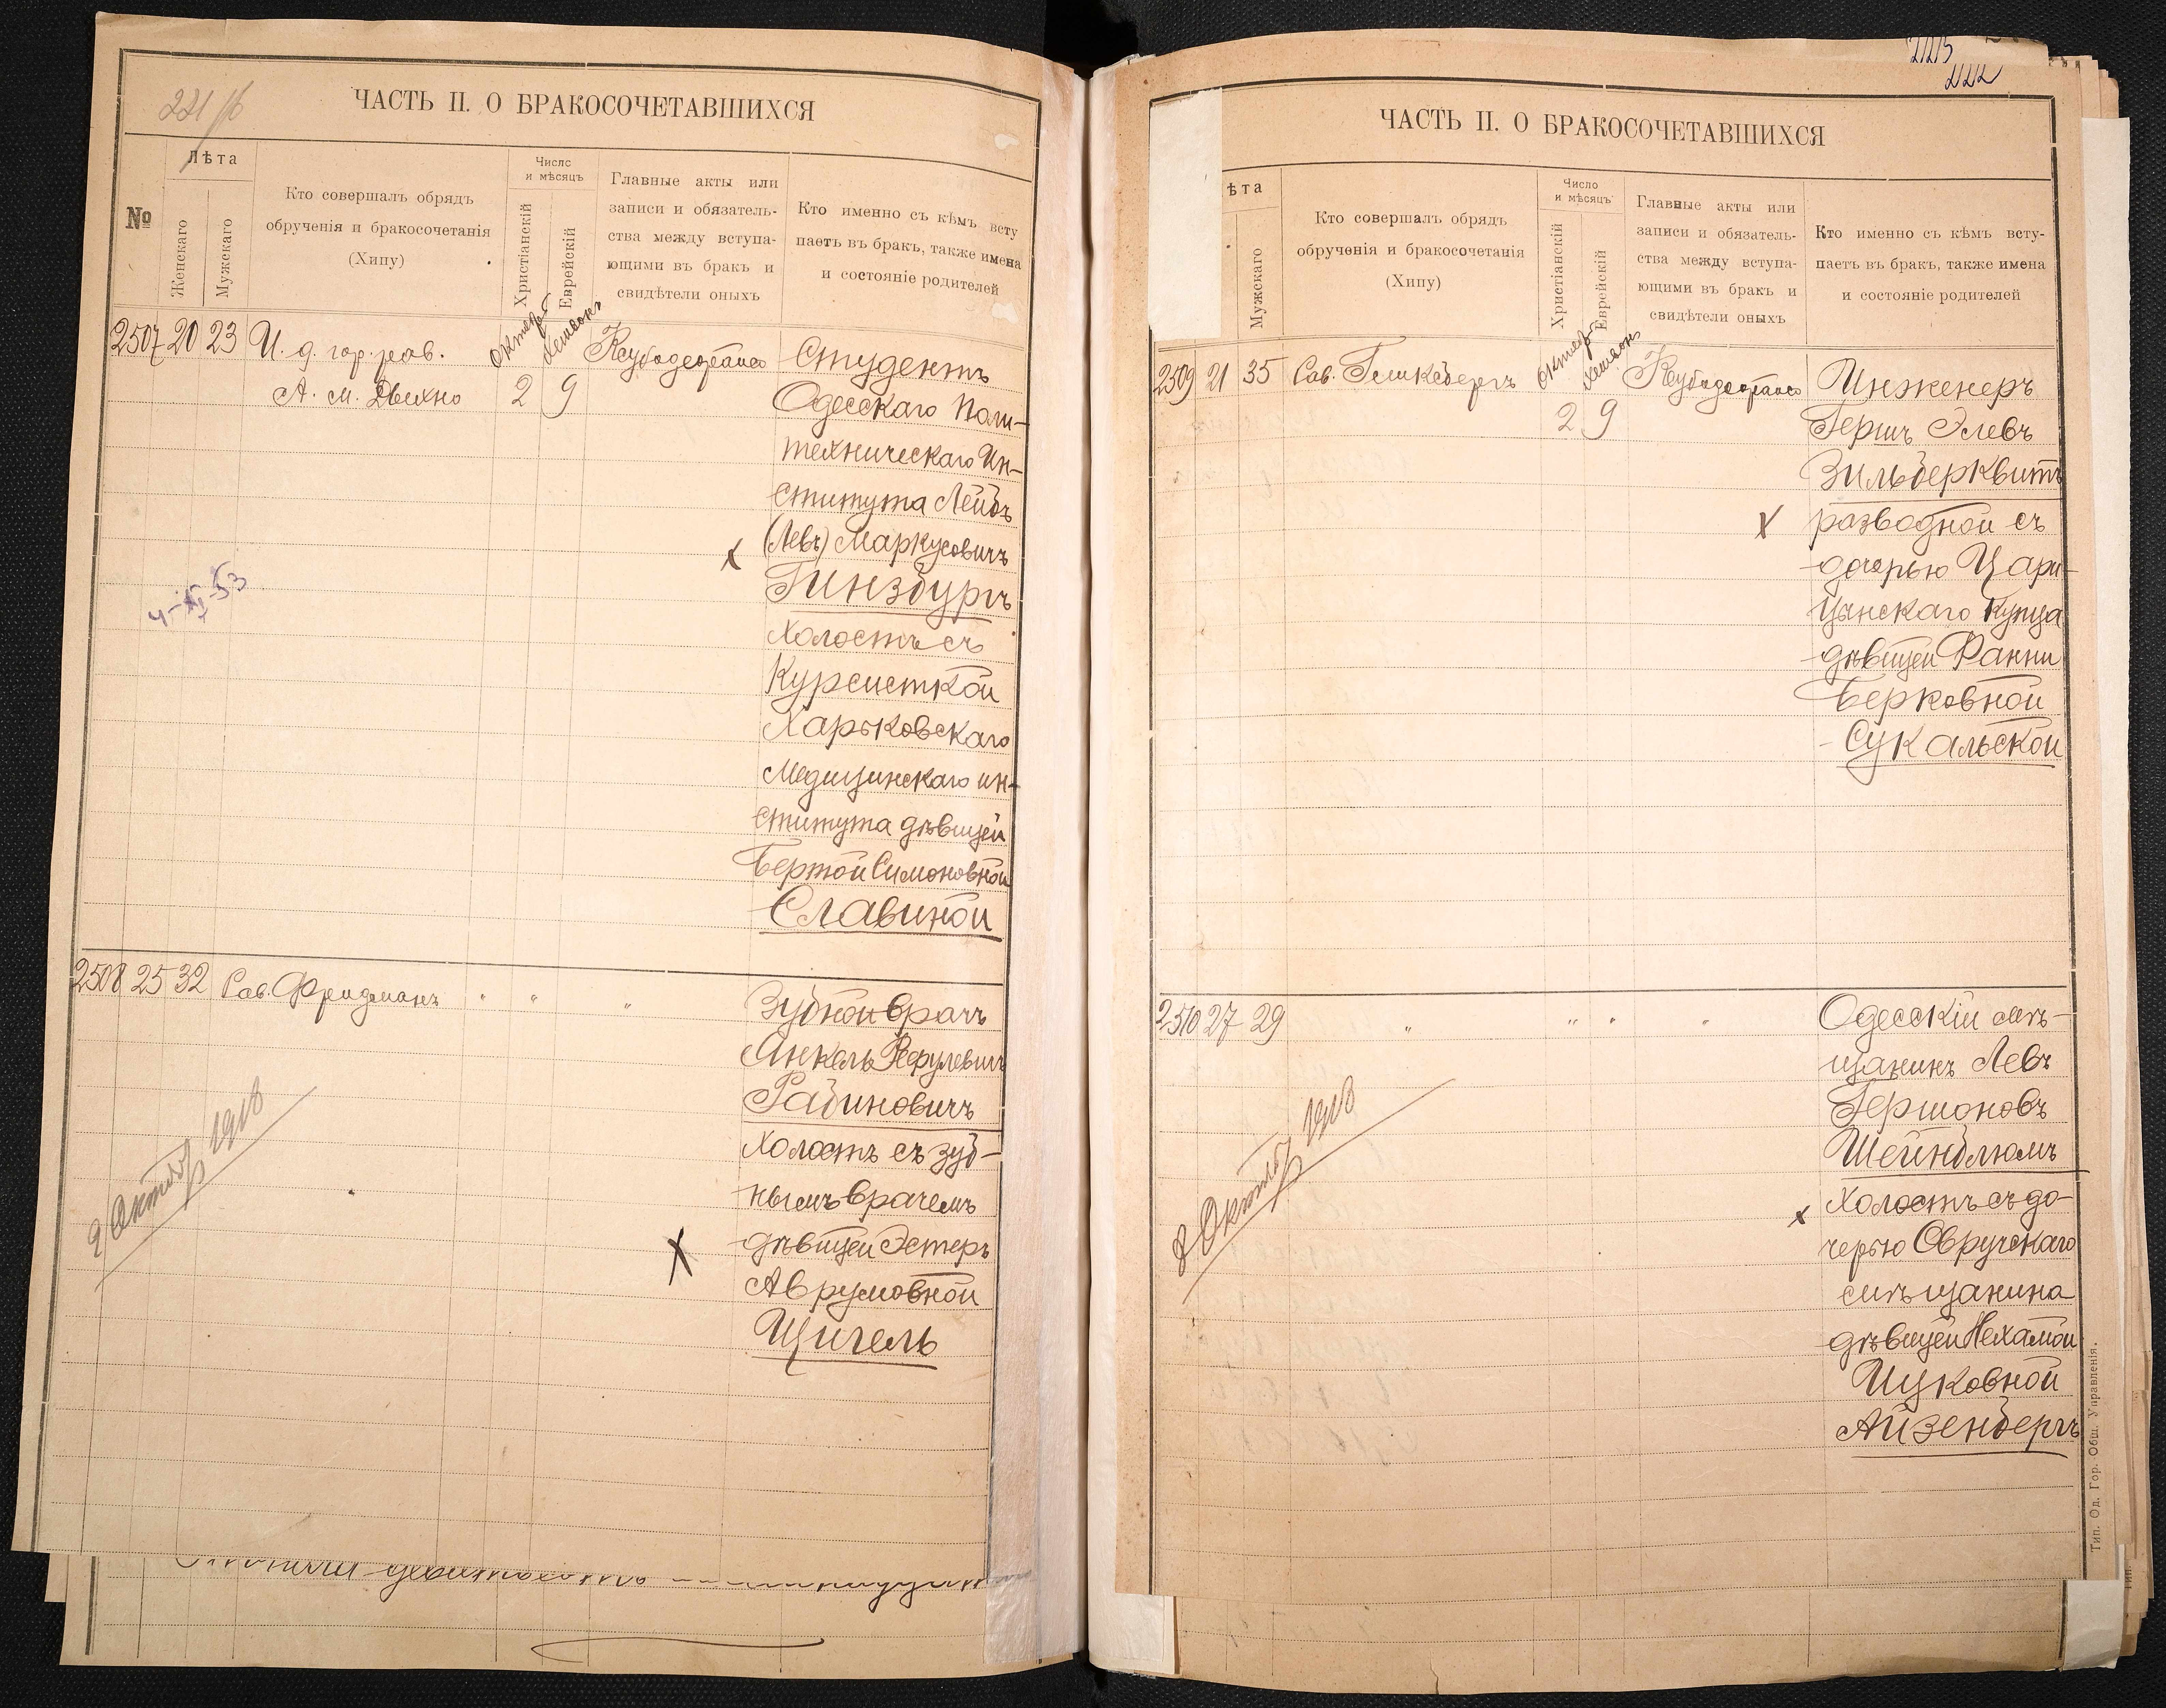 221/б
ЧАСТЬ II. О БРАКОСОЧЕТАВШИХСЯ
№
Лѣта
Женскаго
Мужскаго
Кто совершалъ обрядъ
обрученія и бракосочетанія
(Хипу)
Число
и мѣсяцъ
Христіанскій
Еврейскій
Главные акты или
записи и обязатель-
ства между вступа-
ющими въ бракъ и
свидѣтели оныхъ
Кто именно съ кѣмъ всту
паетъ въ бракъ, также имена
и состояніе родителей
2507 20 23 И. д. гор. рав.
А. М. Двехно
Октяб
Хешвон
2 9
Студентъ
Одесскаго Поли-
техническаго Ин-
ститута Лейбъ
(Левъ) Маркусовичъ
Гинзбургъ
холостъ съ
Курсисткой
Харьковскаго
Медицинскаго ин-
ститута дѣвицей
Бертой Симоновной
Славиной
4-XI-53
2508 25 32 Рав. Фридманъ " " "
Зубной врачъ
Янкель Рефулевичъ
Рабиновичъ
холостъ съ зуб-
нымъ врачемъ
дѣвицей Эстеръ
Аврумовной
Цигель
2 Октяб 1918
223
222
ЧАСТЬ II. О БРАКОСОЧЕТАВШИХСЯ
ѣта
Мужскаго
Кто совершалъ обрядъ
обрученія и бракосочетанія
(Хипу)
Число
и мѣсяцъ
Христіанскій
Еврейскій
Главные акты или
записи и обязатель-
ства между вступа-
ющими въ бракъ и
свидѣтели оныхъ
Кто именно съ кѣмъ всту-
паетъ въ бракъ, также имена
и состояніе родителей
2509 21 35 Рав. Гликсбергъ
Октяб
Хешвон
2 9
Инженеръ
Гершъ Элевъ
Зильберквитъ
разводной съ
дочерью Цари-
цынскаго купца
дѣвицей Фанни
Берковной
Сукальской
2510 27 29 " " " "
Одесскій мѣ-
щанинъ Левъ
Гершоновъ
Шейнблюмъ
холостъ съ до-
черью Овручскаго
мѣщанина
дѣвицей Нехамой
Ицковной
Айзенбергъ
2 Октяб 1918
Тип. Од. Гор. Общ. Управленія.